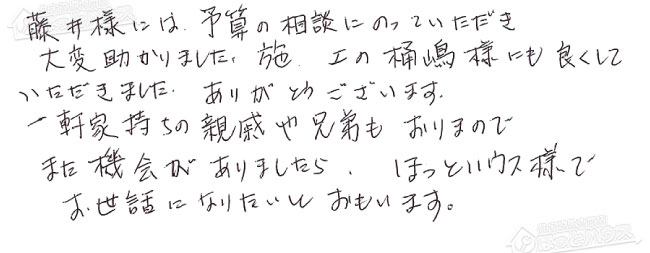 藤井様には、予算の相談にのっていただき
大変助かりました。施工の桶嶋様にも良くして
いただきました。ありがとうございます。
一軒家持ちの親戚や兄弟もおりまので
また機会がありましたら、ほっとハウス様で
お世話になりたいとおもいます。